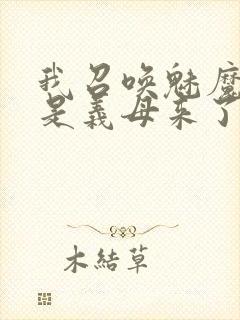 我召唤魅魔
是義母来了
木結草